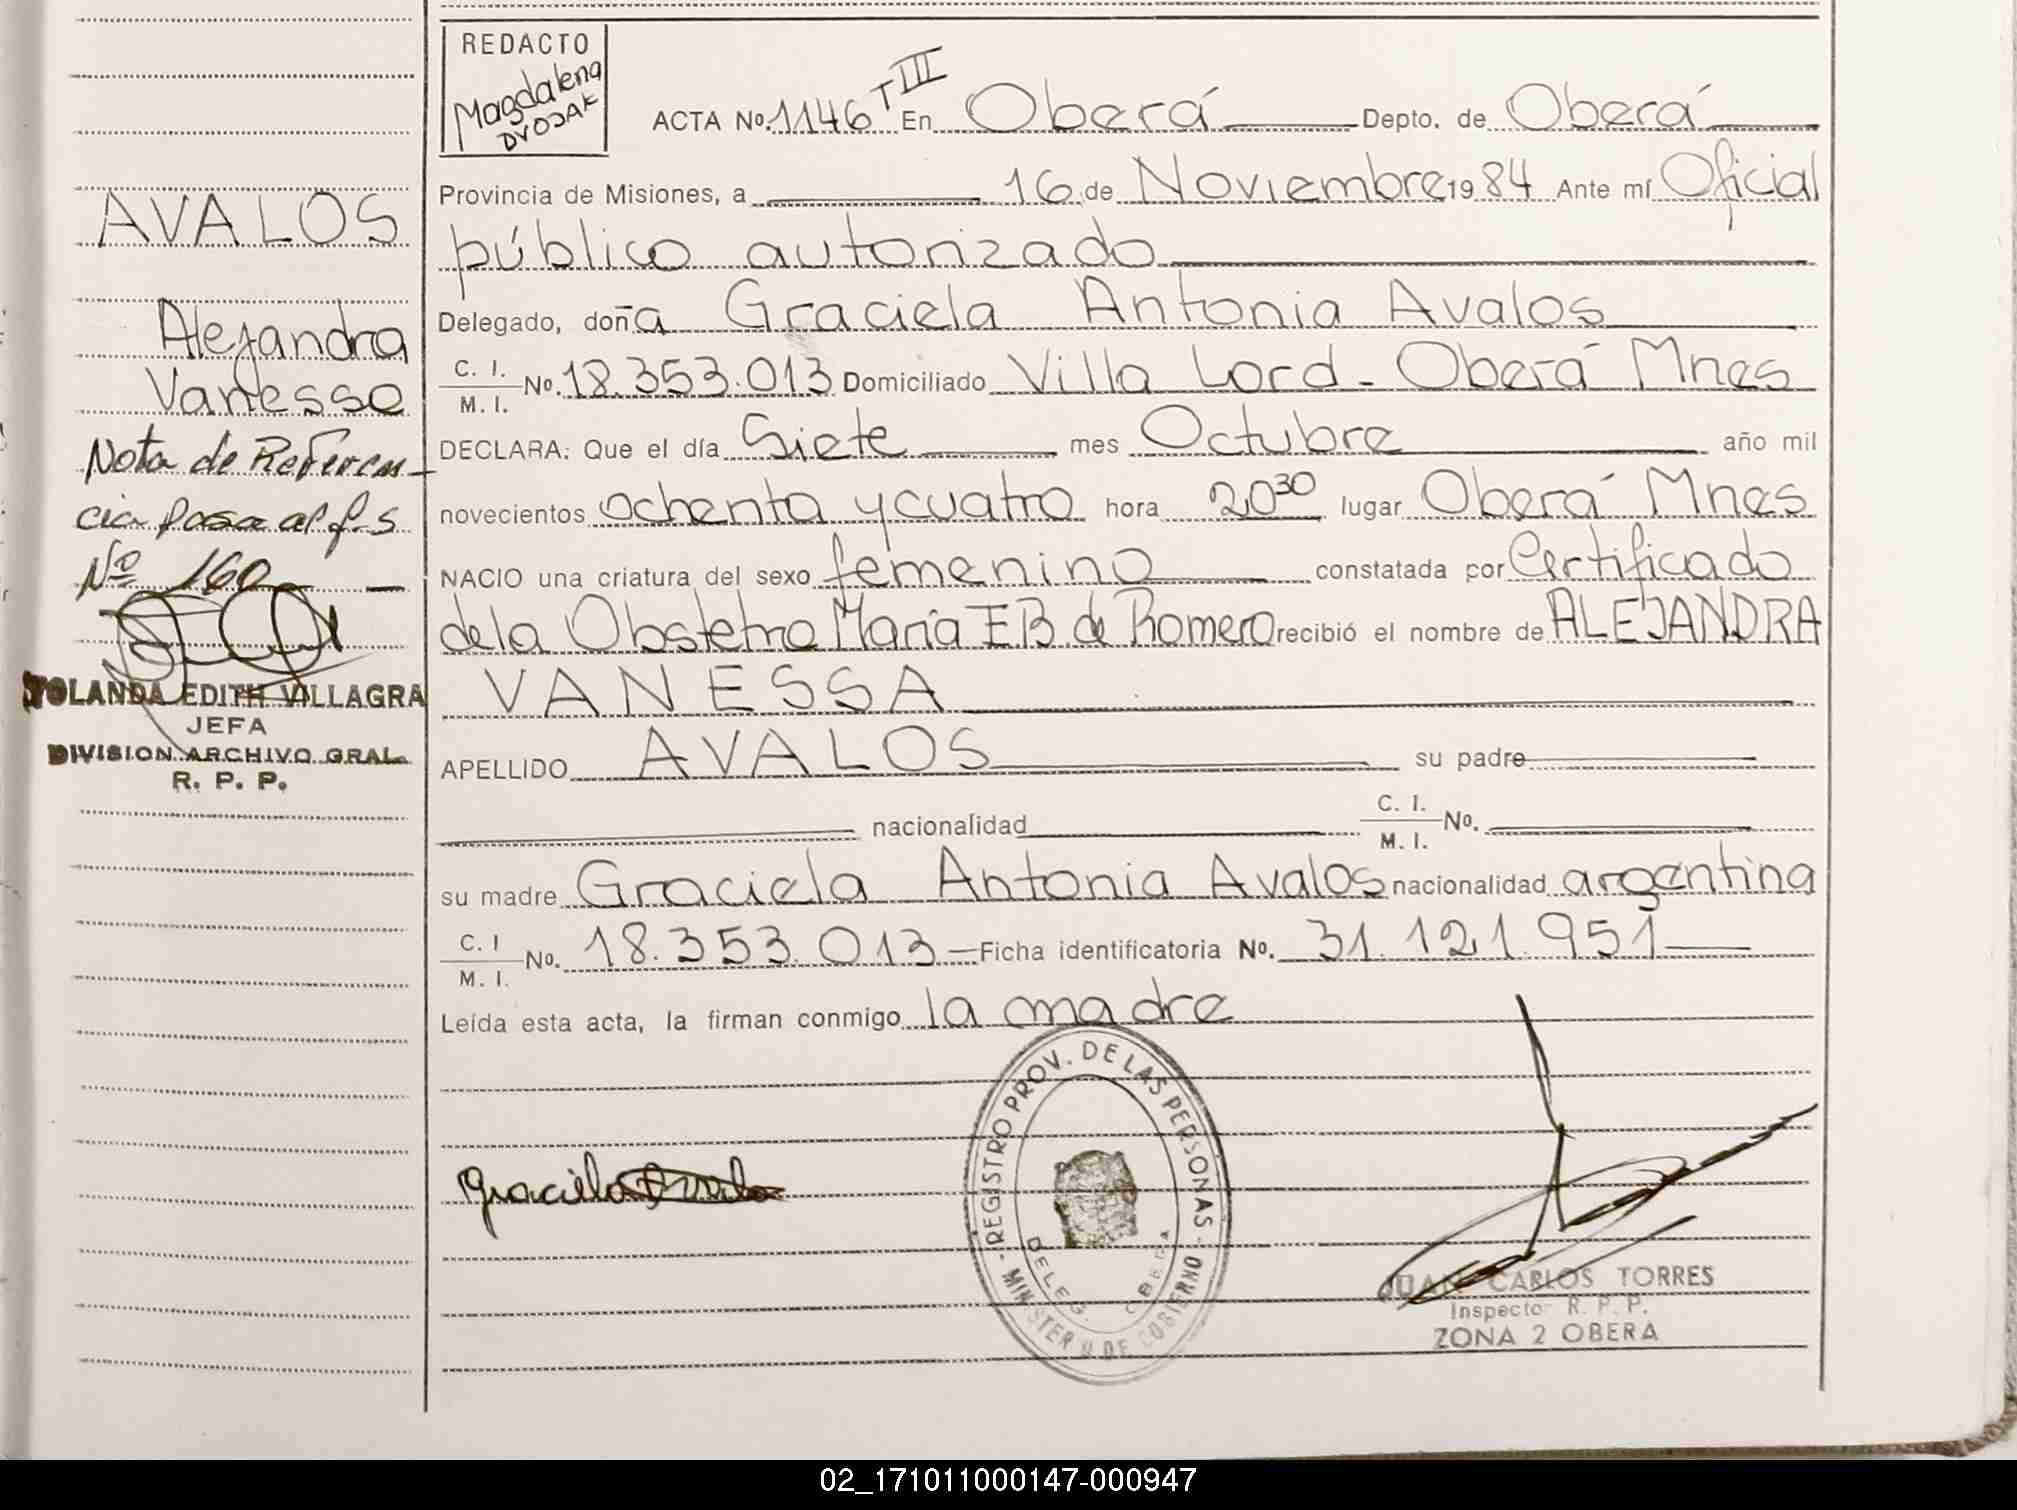 REDACTO
Magdalena
DVOJAK
ACTA No. 1146 T III En Oberá Depto. de Oberá
Provincia de Misiones, a 16 de Noviembre 19 84 Ante mí Oficial
público autorizado
Delegado, doña Graciela Antonia Avalos
C. I. M. I. No. 18.353.013 Domiciliado Villa Lord - Oberá Mnes
DECLARA: Que el día Siete mes Octubre año mil
novecientos ochenta y cuatro hora 20 30 lugar Oberá Mnes
NACIO una criatura del sexo femenino constatada por Certificado
de la Obstetra María E B. de Romero recibió el nombre de ALEJANDRA
VANESSA
APELLIDO AVALOS su padre
nacionalidad C. I. M. I. No.
su madre Graciela Antonia Avalos nacionalidad argentina
C. I M. I. No. 18.353.013 Ficha identificatoria No. 31.121.951
Leída esta acta, la firman conmigo la madre
Graciela Avalos
REGISTRO PROV. DE LAS PERSONAS - MINISTERIO DE GOBIERNO
DELEG. OBERA
JUAN CARLOS TORRES
Inspector R. P. P.
ZONA 2 OBERA
AVALOS
Alejandra
Vanessa
Nota de Referen-
cia pasa al f.s
Nº 160
YOLANDA EDITH VILLAGRA
JEFA
DIVISION ARCHIVO GRAL.
R. P. P.
02_171011000147-000947